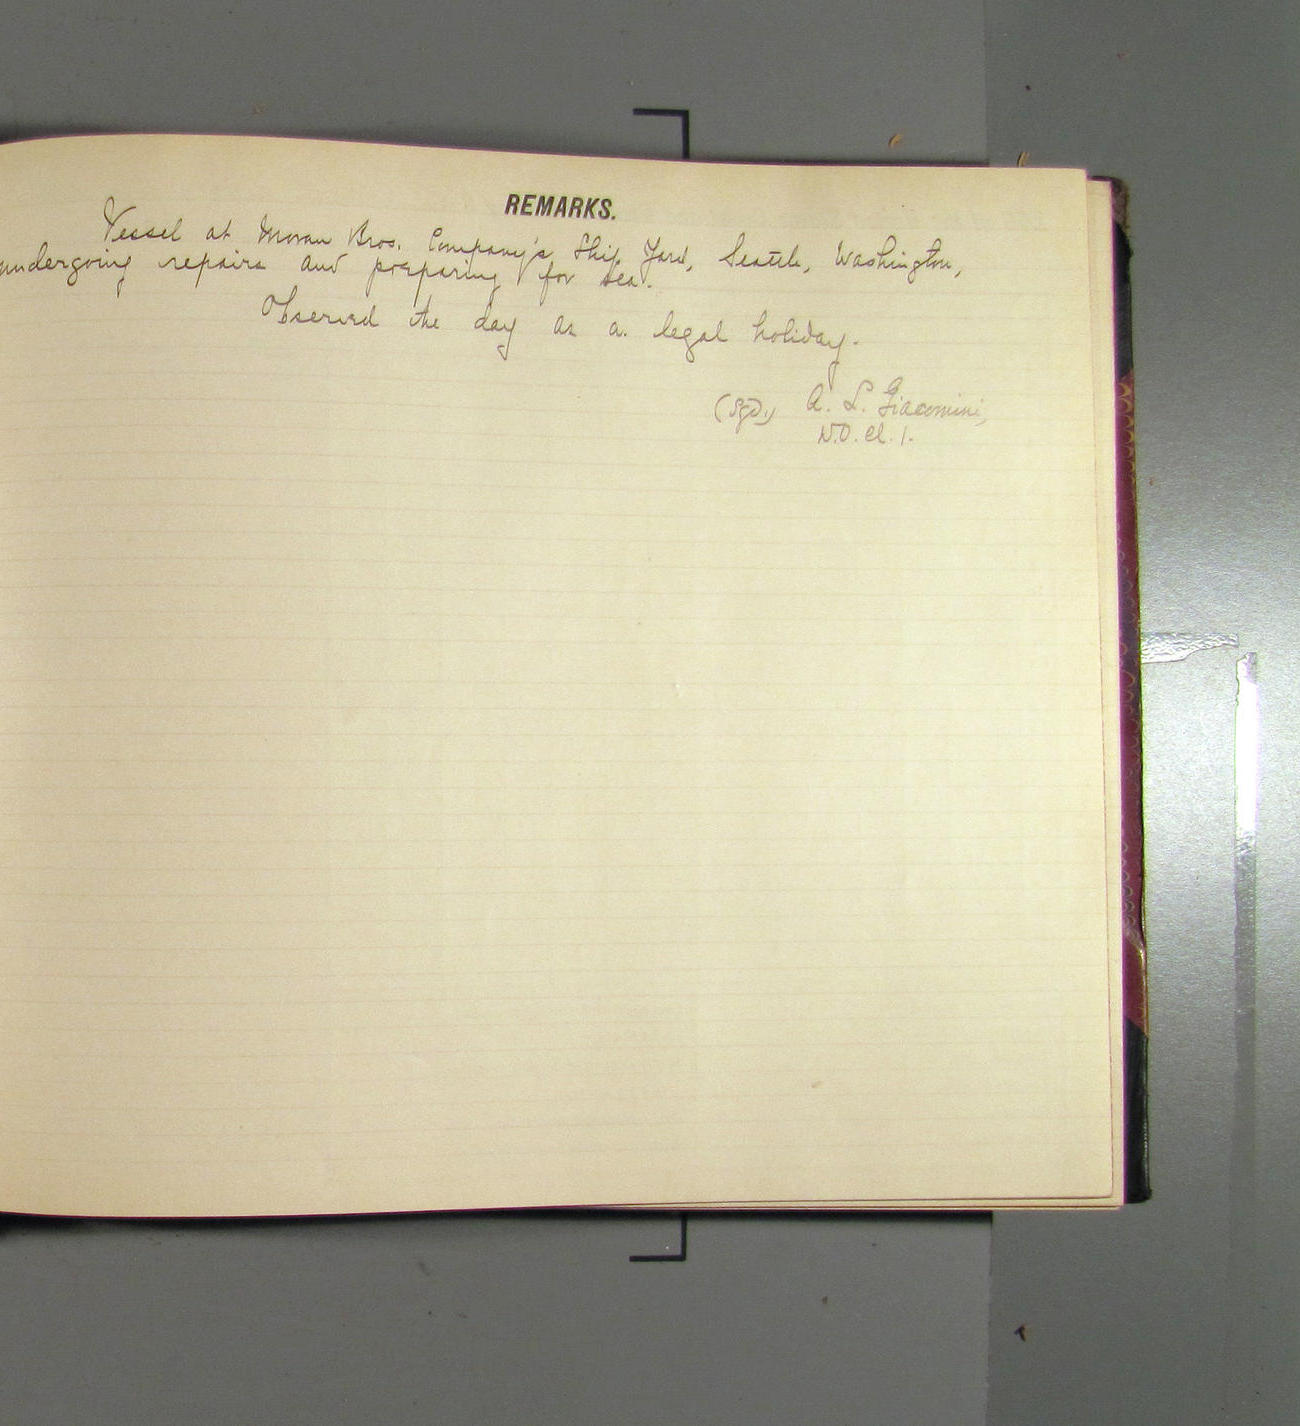 REMARKS.
Vessel at Moran Bros. Company's Ship Yard, Seattle, Washington,
undergoing repairs and preparing for sea.
Observed the day as a legal holiday.
(Sgd.) A. L. Giacomini,
W.O. cl. 1.